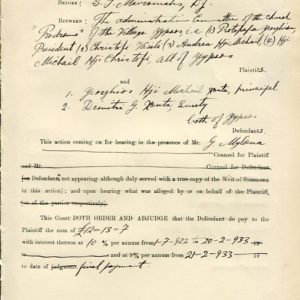 BEFORE:
BETWEEN: The administrative Committee of the church
"Prodromos" of the Village Gypsos i.e (1) Protopapa Georghiou
President (2) Christofi Vasili (3) Andrea Hji Michail (4) Hji
Michail Hji Christofi, all of Gypsos
Plaintiffs.
and
1. Yeorghios Hji Michail principal
2. Dimitri G Surety
both of Gypsos
Defendants.
This action coming on for hearing in the presence of Mr. G
Counsel for Plaintiff
and Mr. Counsel for Defendant
(or Defendant, not appearing although duly served with a true copy of the Writ of Summons
in this action); and upon hearing what was alleged by or on behalf of the Plaintiff,
(or of the parties respectively).
This Court DOTH ORDER AND ADJUDGE that the Defendant do pay to
the Plaintiff the sum of £12-13-7
with interest thereon at 10 per annum from 1-7-922 to 20-2-933
and at 9% per annum from 21-2-933 19
to date of judgment final payment.